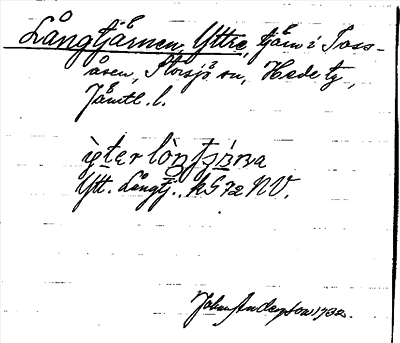 Långtjärnen, Yttre, tjärn i Toss-
åsen, Storsjö sn, Hede tg,
Jämtl. l.
Ytt. Långtj., kS 72 NV.
John Anderson 1932.